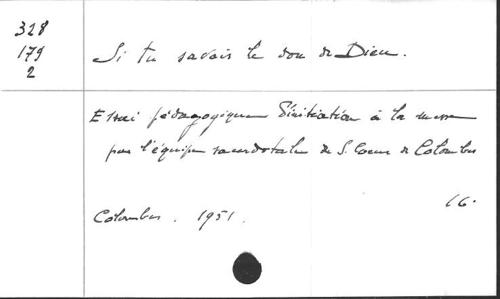 328
179
2
Si tu savais le don de Dieu.
Essai pédagogique d'initiation à la messe
par l'équipe sacerdotale de S. Coeur de Colombes
16.
Colombes. 1951.